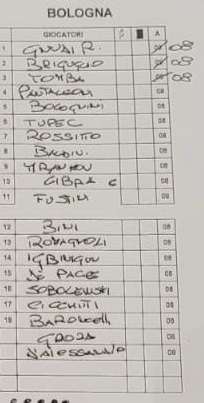 BOLOGNA
GIOCATORI A
1 GNUDI R. 08
2 BRIGUGLIO 08
3 TOMBA 08
4 PANTALEONI 08
5 BOLOGNINI 08
6 TUPEC 08
7 ROSSITTO 08
8 08
9 08
10 GIBRA C 08
11 FUSTINI 08
12 BINI 08
13 ROMAGNOLI 08
14 IGBINIGUN 08
15 DI PACE 08
16 SOBOLEWSKI 08
17 CICCHITTI 08
18 BARONCELLI 08
GROZA 08
D'ALESSANDRO 08